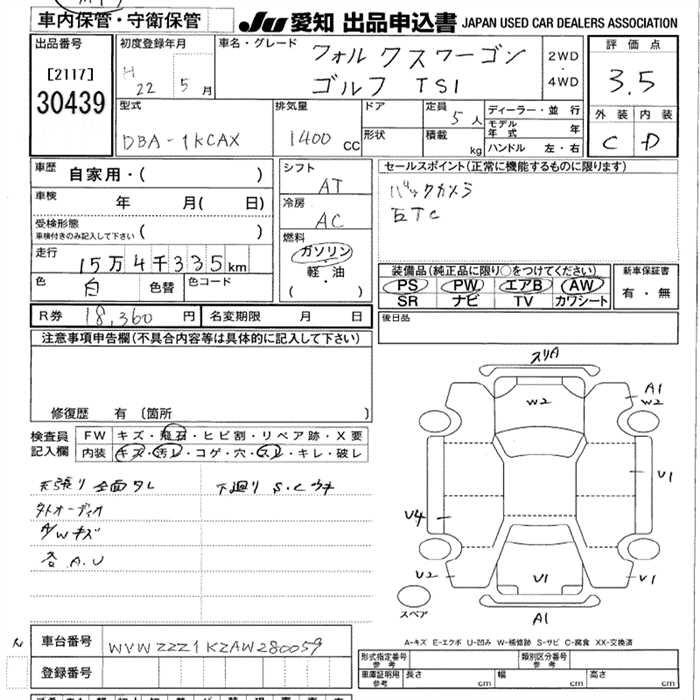 車内保管・守衛保管
JU 愛知 出品申込書 JAPAN USED CAR DEALERS ASSOCIATION
出品番号
[2117]
30439
初度登録年月
H 22 5 月
車名・グレード
フォルクスワーゲン
ゴルフ TSI
2WD
・
4WD
評価点
3.5
外装 内装
C D
型式
DBA-1KCAX
排気量
1400 cc
ドア
形状
定員 5 人
積載 kg
ディーラー・並行
モデル年式 年
ハンドル 左・右
車歴 自家用・( )
車検 年 月( 日)
受検形態
車検付きのみ記入して下さい ( )
走行 15万4千335km
色 白 色替 色コード
シフト
AT
冷房
AC
燃料
ガソリン
軽・油
( ・ )
セールスポイント(正常に機能するものに限ります)
バックカメラ
ETC
装備品(純正品に限り○をつけてください)
PS PW エアB AW
SR ナビ TV カワシート
新車保証書
有・無
R券 18,360 円 名変期限 月 日
後日品
注意事項申告欄(不具合内容等は具体的に記入して下さい)
修復歴 有 (箇所 )
検査員
記入欄
FW キズ・飛石・ヒビ割・リペア跡・X要
内装 キズ・汚レ・コゲ・穴・スレ・キレ・破レ
天張り全面タレ 下廻り S.Cウキ
外オーディオ
A/Wキズ
各A.U
スリA
W2
A1
W2
U1
U4
U2
U1
U1
スペア
A1
A-キズ E-エクボ U-凹み W-補修跡 S-サビ C-腐食 XX-交換済
車台番号 WVWZZZ1KZAW280059
登録番号
形式指定番号
参考
類別区分番号
参考
車庫証明用
参考
長さ cm 幅 cm 高さ cm